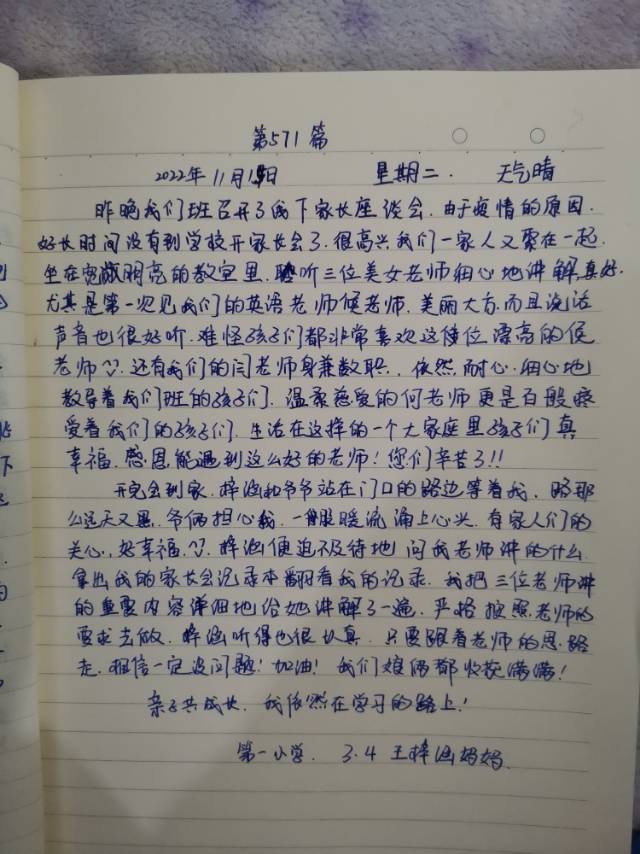 第571篇
2022年11月15日 星期二. 天气晴
昨晚我们班召开了线下家长座谈会.由于疫情的原因.
好长时间没有到学校开家长会了.很高兴我们一家人又聚在一起.
坐在宽敞明亮的教室里.聆听三位美女老师细心地讲解.真好.
尤其是第一次见我们的英语老师候老师.美丽大方.而且说话
声音也很好听.难怪孩子们都非常喜欢这位漂亮的侯
老师^^.还有我们的闫老师身兼数职.依然耐心.细心地
教导着我们班的孩子们.温柔慈爱的何老师更是百般疼
爱着我们的孩子们.生活在这样的一个大家庭里孩子们真
幸福.感恩能遇到这么好的老师!您们辛苦了!!
开完会到家.梓涵和爷爷站在门口的路边等着我.路那
么远天又黑.爷俩担心我.一股暖流涌上心头.有家人们的
关心.好幸福.^^.梓涵便迫不及待地问我老师讲的什么
拿出我的家长会记录本翻看我的记录.我把三位老师讲
的重要内容详细地给她讲解了一遍.严格按照老师的
要求去做.梓涵听得也很认真.只要跟着老师的思路
走.相信一定没问题!加油!我们娘俩都收获满满!
亲子共成长.我依然在学习的路上!
第一小学. 3.4 王梓涵妈妈.